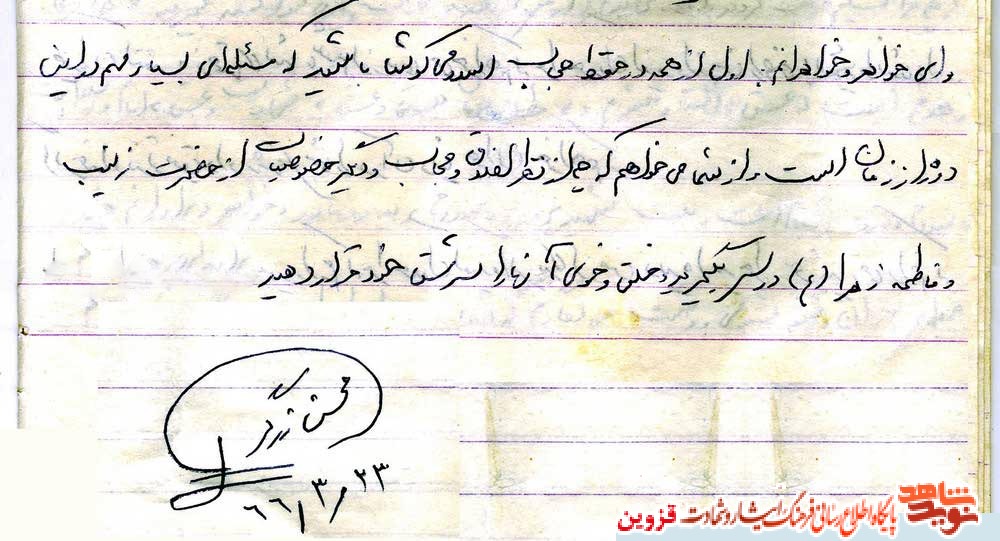 وای خواهر و خواهرانم اول از همه در حفظ حجاب اسلامی کوشا باشید که مسئله‌ای بسیار مهم در این
دوره از زمان است و از شما می‌خواهم که چه از نظر اخلاق و حجاب و دیگر خصوصیات از حضرت زینب
و فاطمه زهرا (ع) درس بگیرید و خلق و خوی آنها را سرشتی خود قرار دهید
محسن زرگر
۶۶/۳/۲۳
شاهد
نوید
پایگاه اطلاع رسانی فرهنگ ایثار و شهادت قزوین